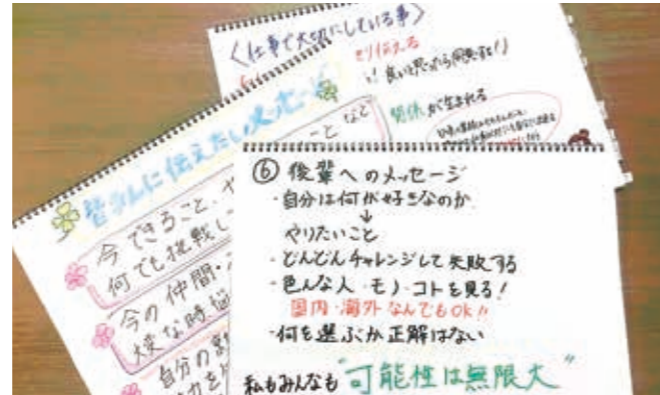 〈仕事で大切にしている事〉
伝える
良いと思ったら
関係が生まれる
皆さんに伝えたいメッセージ
今できること、や
何でも挑戦し
こと など
今の仲間・
大変な時
自分の
⑥ 後輩へのメッセージ
・自分は何が好きなのか
↓
やりたいこと
・どんどんチャレンジして失敗する
・色んな人・モノ・コトを見る!
国内・海外なんでもOK!!
・何を選ぶか正解はない
私もみんなも“可能性は無限大”